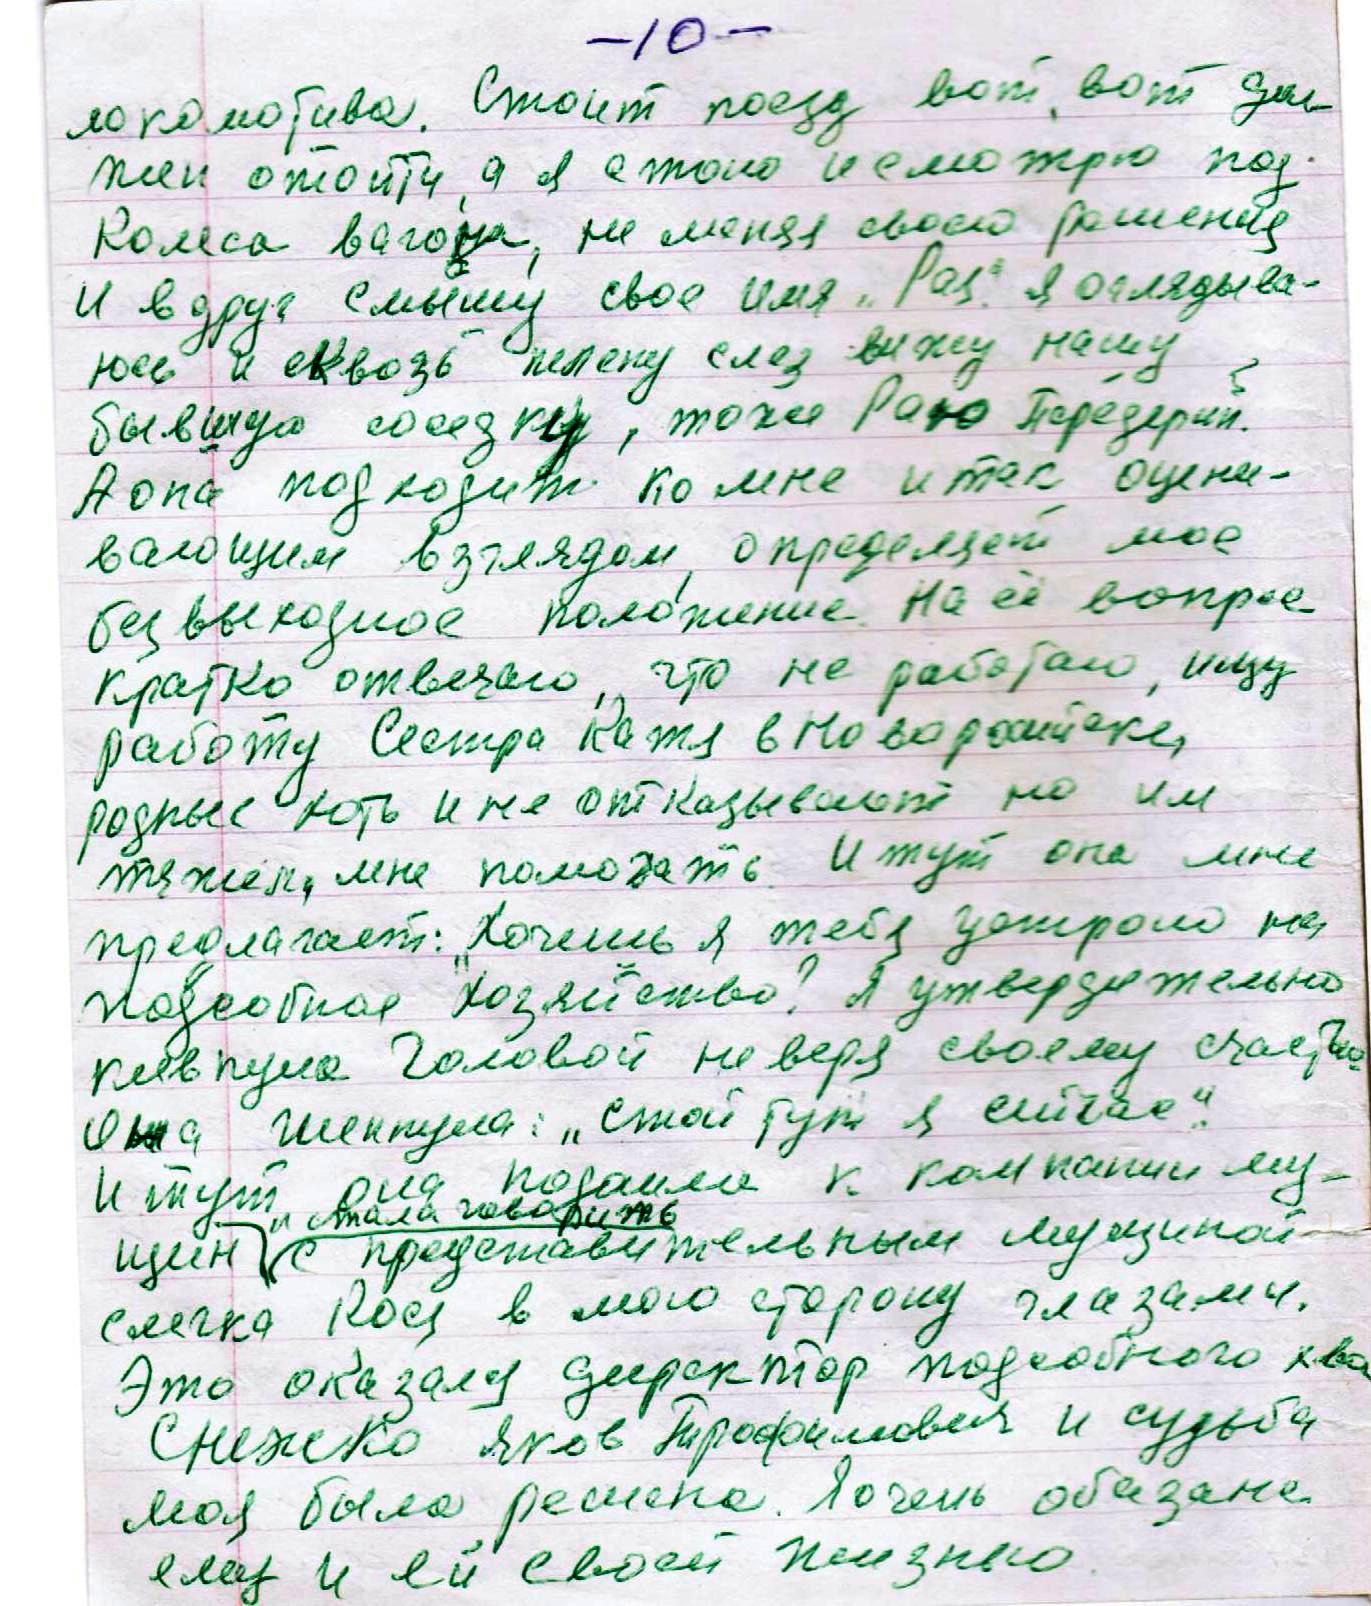 -10-
локомотива. Стоит поезд вот, вот дол-
жен отойти, а я стою и смотрю под
колеса вагона, не меняя своего решения
И вдруг слышу свое имя „Рая" я оглядыва-
юсь и сквозь пелену слез вижу нашу
бывшую соседку, тоже Раю Передерий.
А она подходит ко мне и так оцени-
вающим взглядом, определяет мое
безвыходное положение. На её вопрос
кратко отвечаю, что не работаю, ищу
работу Сестра Катя в Новороссийске,
родные хоть и не отказывают но им
тяжело, мне помогать. И тут она мне
предлагает: „Хочешь я тебя устрою на
подсобное хозяйство? Я утвердительно
кивнула головой не веря своему счастью
Она шепнула: „Стой тут я сейчас".
И тут она подошла к компании му-
и стала говорить
щин с представительным мущиной
слегка кося в мою сторону глазами.
Это оказался директор подсобного х-ва
Снежко Яков Трофимович и судьба
моя была решена. Я очень обязана
ему и ей своей жизнью.